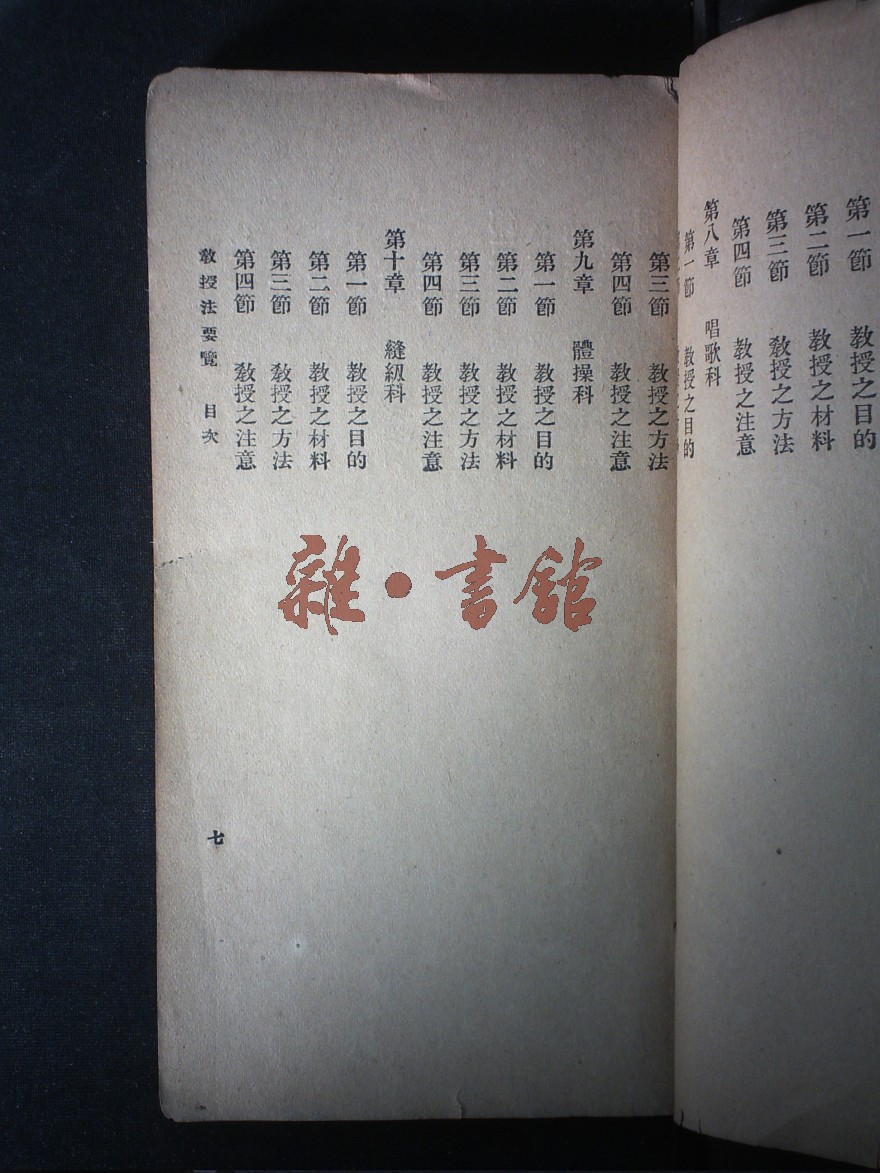 第一節 教授之目的
第二節 教授之材料
第三節 教授之方法
第四節 教授之注意
第八章 唱歌科
第一節 教授之目的
第三節 教授之方法
第四節 教授之注意
第九章 體操科
第一節 教授之目的
第二節 教授之材料
第三節 教授之方法
第四節 教授之注意
第十章 縫紉科
第一節 教授之目的
第二節 教授之材料
第三節 教授之方法
第四節 教授之注意
教授法要覽 目次
七
雜·書館